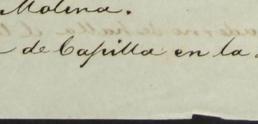 Molina.
de Capilla en la